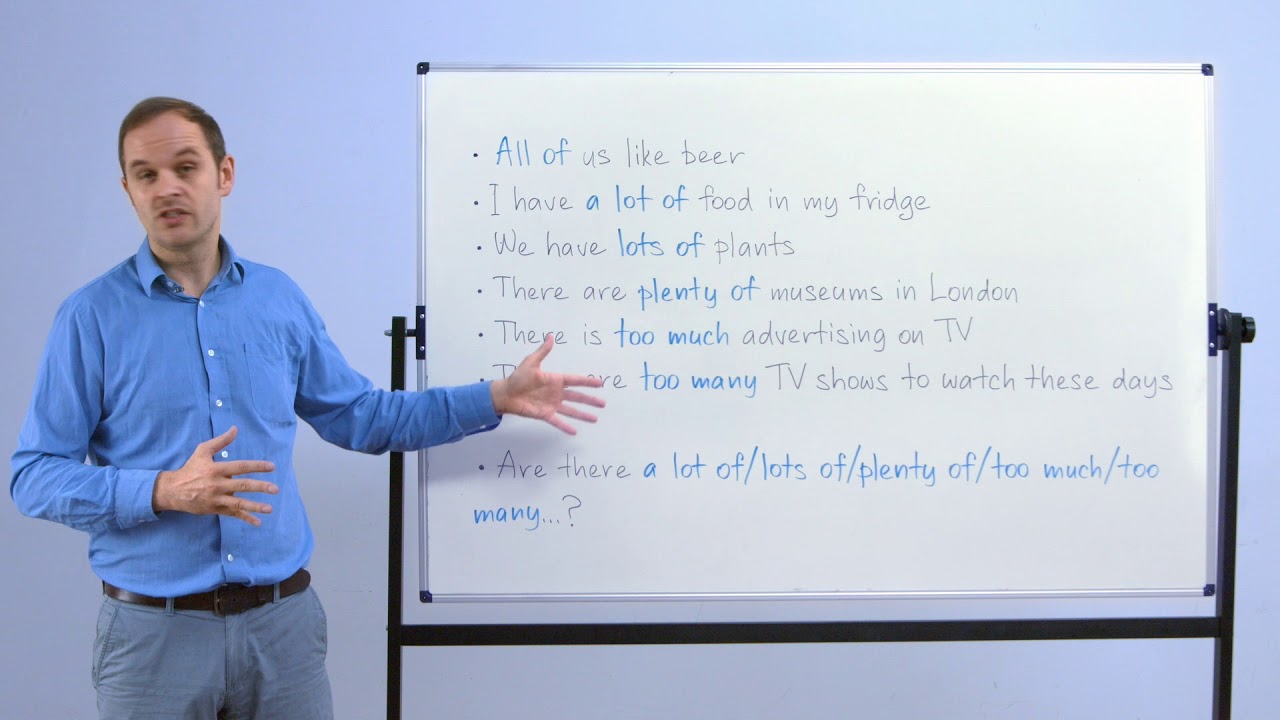 · All of us like beer
· I have a lot of food in my fridge
· We have lots of plants
· There are plenty of museums in London
· There is too much advertising on TV
· too many TV shows to watch these days
· Are there a lot of/lots of/plenty of/too much/too
many...?